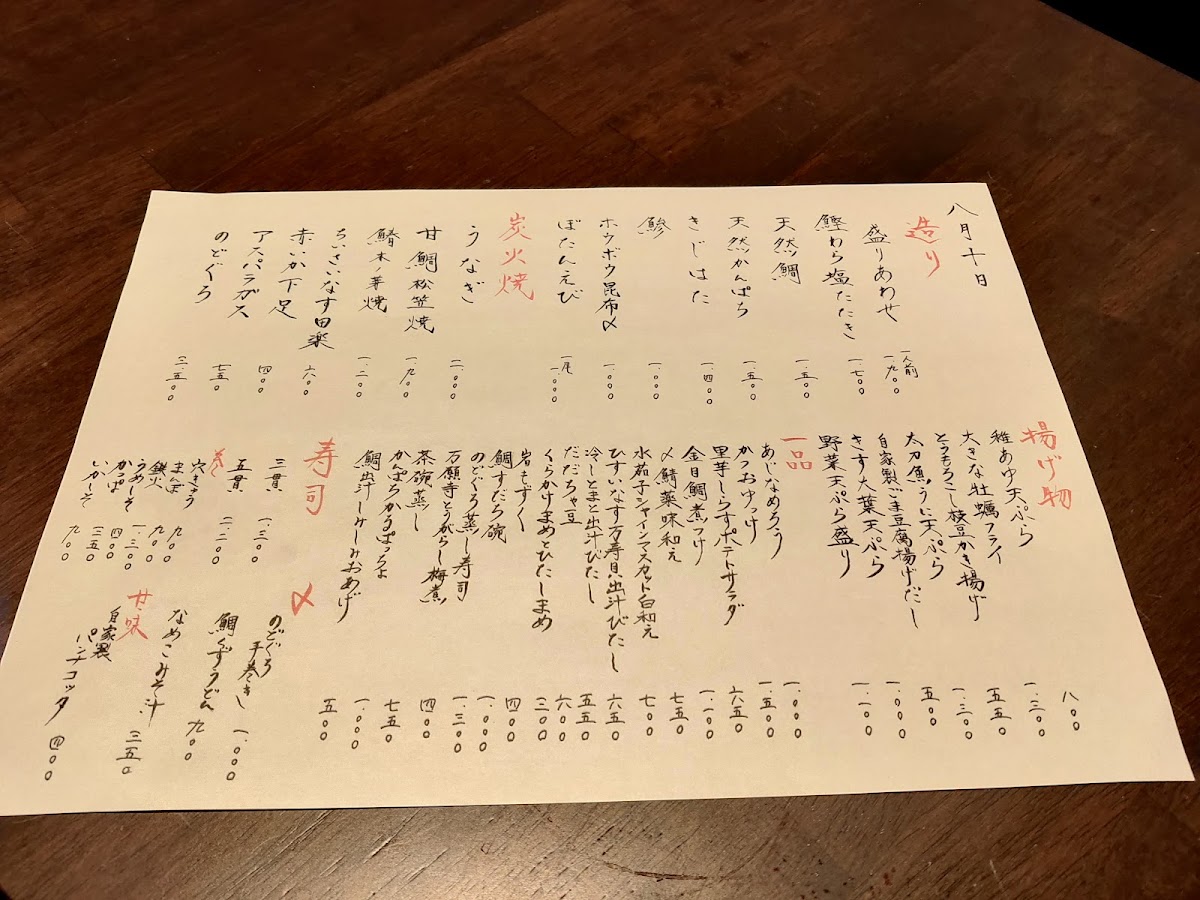 八月十日
造り
盛りあわせ 一人前 一、九〇〇
鰹わら塩たたき 一、七〇〇
天然鯛 一、五〇〇
天然かんぱち 一、五〇〇
きじはた 一、四〇〇
鯵 一、〇〇〇
ホウボウ昆布〆 一、〇〇〇
ぼたんえび 一尾 一、〇〇〇
炭火焼
うなぎ 二、〇〇〇
甘鯛松笠焼 一、九〇〇
鰆木ノ芽焼 一、二〇〇
ちいさいなす田楽 六〇〇
赤いか下足 四〇〇
アスパラガス 七五〇
のどぐろ 三、五〇〇
揚げ物
稚あゆ天ぷら 八〇〇
大きな牡蠣フライ 一、三〇〇
とうもろこし枝豆かき揚げ 五五〇
太刀魚うに天ぷら 一、三〇〇
自家製ごま豆腐揚げだし 五〇〇
きす大葉天ぷら 一、〇〇〇
野菜天ぷら盛り 一、一〇〇
一品
あじなめろう 一、〇〇〇
かつおゆっけ 一、五〇〇
里芋しらすポテトサラダ 六五〇
金目鯛煮つけ 一、一〇〇
〆鯖薬味和え 七五〇
水茄子シャインマスカット白和え 七〇〇
ひすいなす万寿貝出汁びたし 六五〇
冷しとまと出汁びたし 五五〇
だだちゃ豆 六〇〇
くらかけまめとひたしまめ 三〇〇
岩もずく 四〇〇
鯛すだち碗 一、〇〇〇
のどぐろ蒸し寿司 一、三〇〇
万願寺とうがらし梅煮 四〇〇
茶碗蒸し 七五〇
かんぱちかるぱっちょ 一、〇〇〇
鯛出汁しみしみおあげ 五〇〇
寿司
三貫 一、三〇〇
五貫 二、二〇〇
巻
穴きゅう 九〇〇
まんま 九〇〇
鉄火 一、三〇〇
うめしそ 四〇〇
かっぱ 三五〇
いかしそ 九〇〇
〆
のどぐろ手巻き 一、〇〇〇
鯛だしうどん 九〇〇
なめこみそ汁 三五〇
甘味
自家製
パンナコッタ 四〇〇